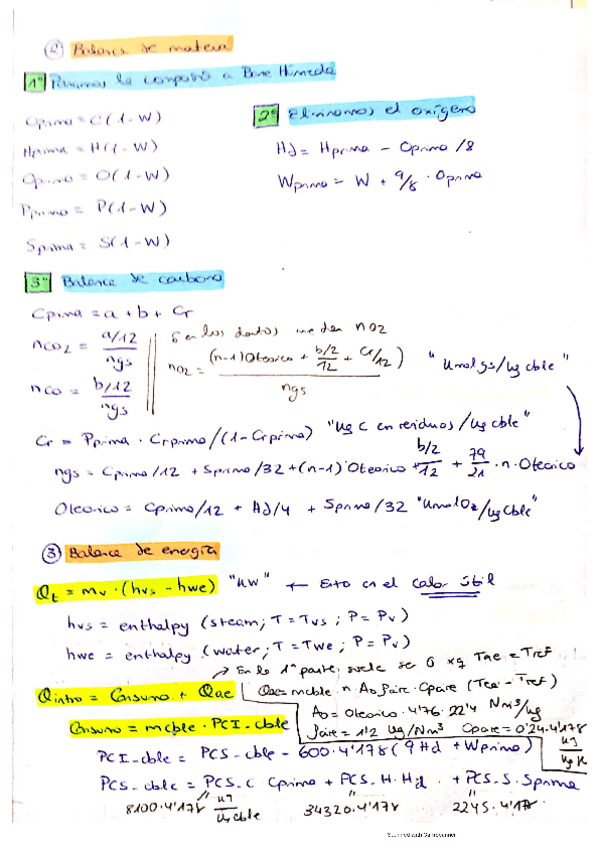 ② Balance de materia
1º Pasamos la composió a Base Húmeda
Cprima = C(1-W)
Hprima = H(1-W)
Oprima = O(1-W)
Pprima = P(1-W)
Sprima = S(1-W)
2º Eliminamos el oxígeno
Hd = Hprima - Oprima /8
Wprima = W + 9/8 · Oprima
3º Balance de carbono
Cprima = a + b + Cr
nCO2 = (a/12)/ngs
nCO = (b/12)/ngs
Si en los datos me dan nO2
nO2 = ((n-1)Oteorico + (b/2)/12 + Cr/12)/ngs
"Kmol gs/Kg cble"
Cr = Pprima · Crprima/(1-Crprima) "Kg C en residuos/Kg cble"
ngs = Cprima/12 + Sprima/32 + (n-1)·Oteorico + (b/2)/12 + 79/21 · n · Oteorico
Oteorico = Cprima/12 + Hd/4 + Sprima/32 "Kmol O2/Kg Cble"
③ Balance de energía
Qt = mv · (hvs - hwe) "KW" ← Esto es el calor útil
hvs = enthalpy (steam; T = Tvs ; P = Pv)
hwe = enthalpy (water; T = Twe ; P = Pv)
→ En la 1ª parte, suele ser 0 xq Tae = Tref
Qintro = Consumo + Qae
Qae = mcble · n · Ao · ρaire · Cpaire (Tea - Tref)
Ao = Oteorico · 4'76 · 22'4 Nm³/Kg
Consumo = mcble · PCI_cble
ρaire = 1'2 Kg/Nm³ Cpaire = 0'24 · 4'178 KJ/Kg K
PCI_cble = PCS_cble - 600 · 4'178 (9Hd + Wprima)
PCS_cble = PCS_C · Cprima + PCS_H · Hd + PCS_S · Sprima
8100 · 4'178 KJ/Kg cble 34320 · 4'178 2245 · 4'178
Scanned with CamScanner